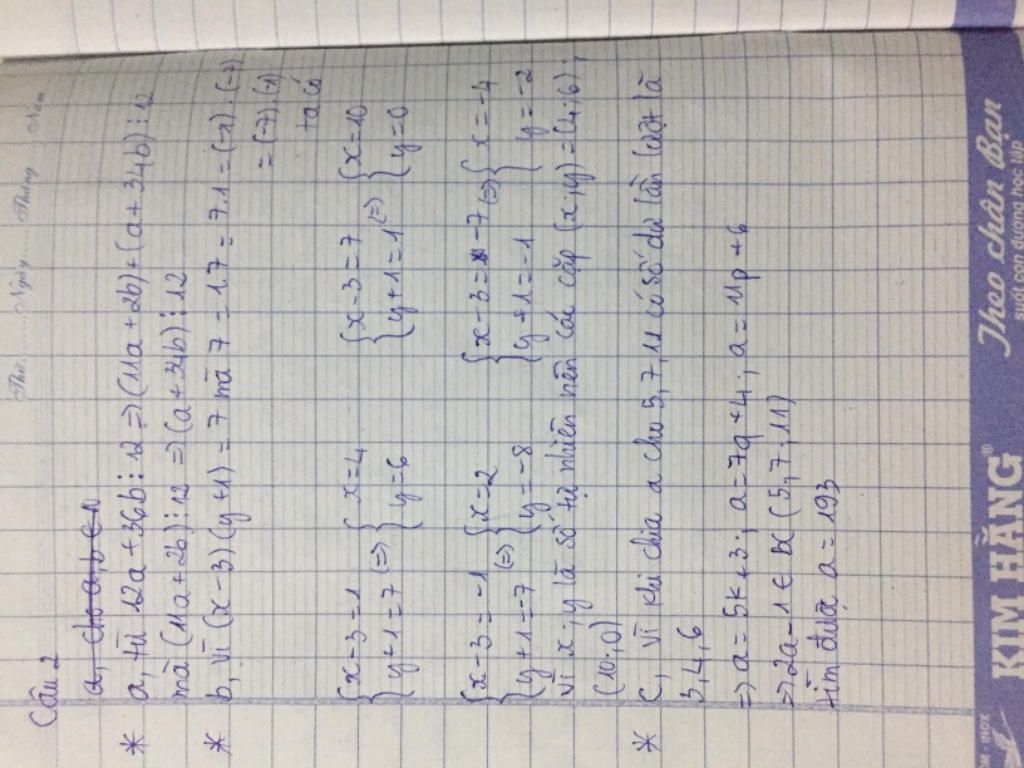 Thứ........Ngày........Tháng........Năm
Câu 2
a, cho a, b ∈ N
* a, từ 12a + 36b ⋮ 12 => (11a + 2b) + (a + 34b) ⋮ 12
mà (11a + 2b) ⋮ 12 => (a + 34b) ⋮ 12
* b, vì (x - 3)(y + 1) = 7 mà 7 = 1.7 = 7.1 = (-1).(-7)
= (-7).(-1)
ta có
{x - 3 = 1 {x = 4 {x - 3 = 7 {x = 10
{y + 1 = 7 (=) {y = 6 {y + 1 = 1 (=) {y = 0
{x - 3 = -1 {x = 2 {x - 3 = -7 {x = -4
{y + 1 = -7 (=) {y = -8 {y + 1 = -1 (=) {y = -2
Vì x, y là số tự nhiên nên các cặp (x; y) = (4; 6);
(10; 0)
* C, Vì khi chia a cho 5, 7, 11 có số dư lần lượt là
3, 4, 6
=> a = 5k + 3; a = 7q + 4; a = 11p + 6
=> 2a - 1 ∈ BC (5, 7, 11)
tìm được a = 193
INOX
KIM HẰNG® Theo chân Bạn
suốt con đường học tập